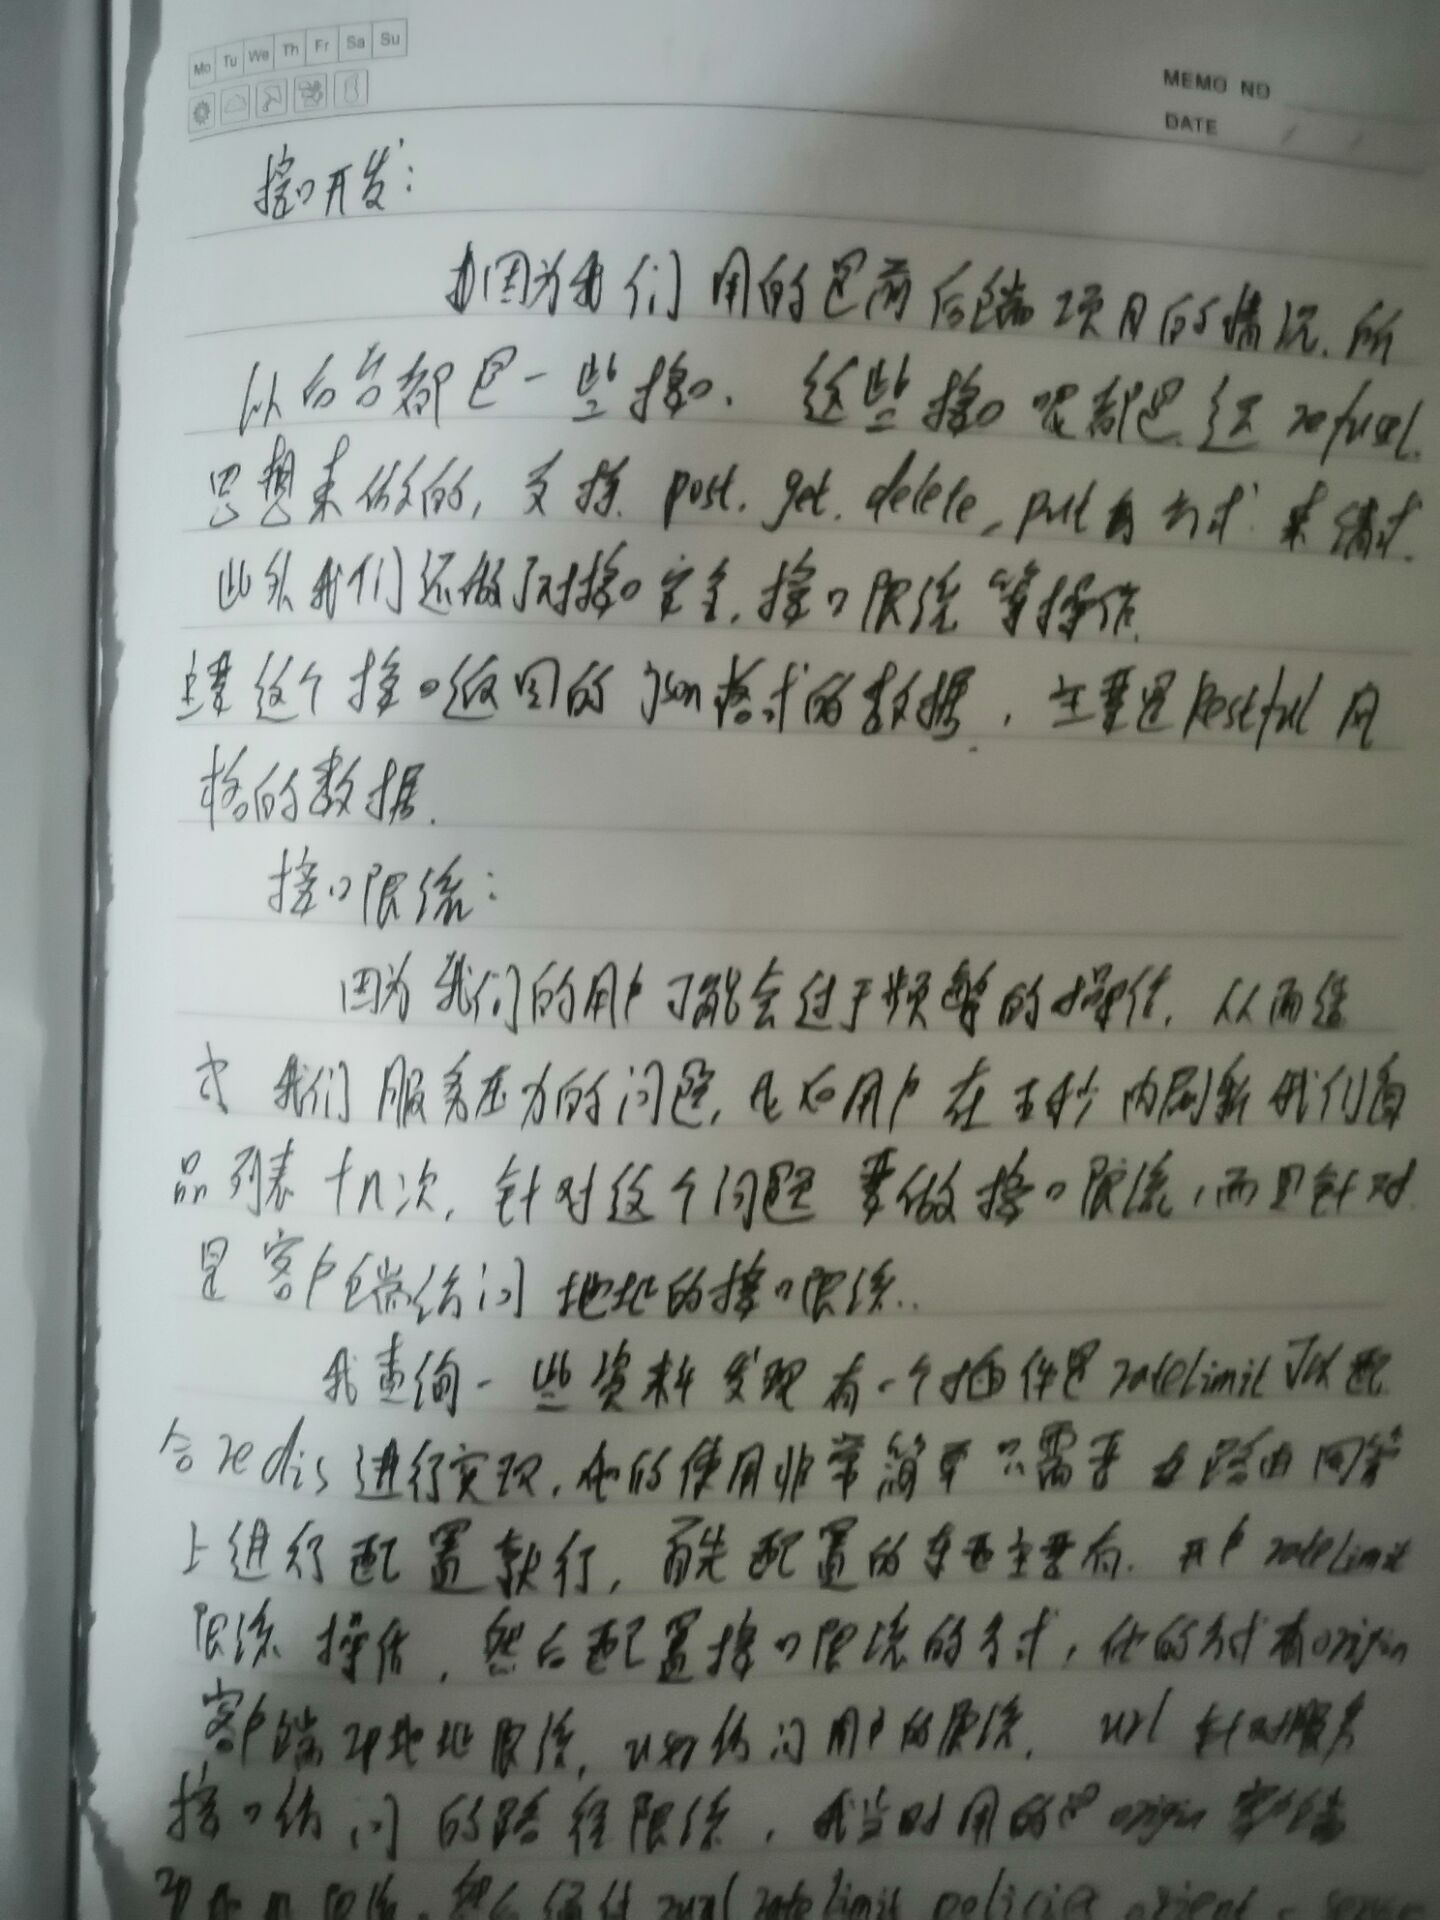 Mo Tu We Th Fr Sa Su
MEMO NO
DATE / /
接口开发:
因为我们用的是前后端项目的情况,所
以后台都是一些接口. 这些接口呢都是 refusel
思想来做的,支持. post. get. delete, put 方式 来请求.
此外我们还做了对接口安全,接口限流等操作.
主要这个接口返回的json格式的数据, 主要是Restful 风
格的数据.
接口限流:
因为我们的用户可能会过于频繁的操作, 从而给
我们服务压力的问题, 比如用户在五秒内刷新我们商
品列表十几次, 针对这个问题要做接口限流,而且针对
是客户端访问地址的接口限流..
我查询一些资料发现有一个插件是ratelimit可以配
合redis进行实现, 他的使用非常简单只需要在路由网关
上进行配置就行, 首先配置的东西主要有. 开户 ratelimit
限流操作, 然后配置接口限流的方式, 他的方式有origin
客户端ip地址限流, user访问用户的限流, url 针对服务
接口访问的路径限流, 我当时用的是origin 客户端
ip地址限流, 然后通过 zuul ratelimit